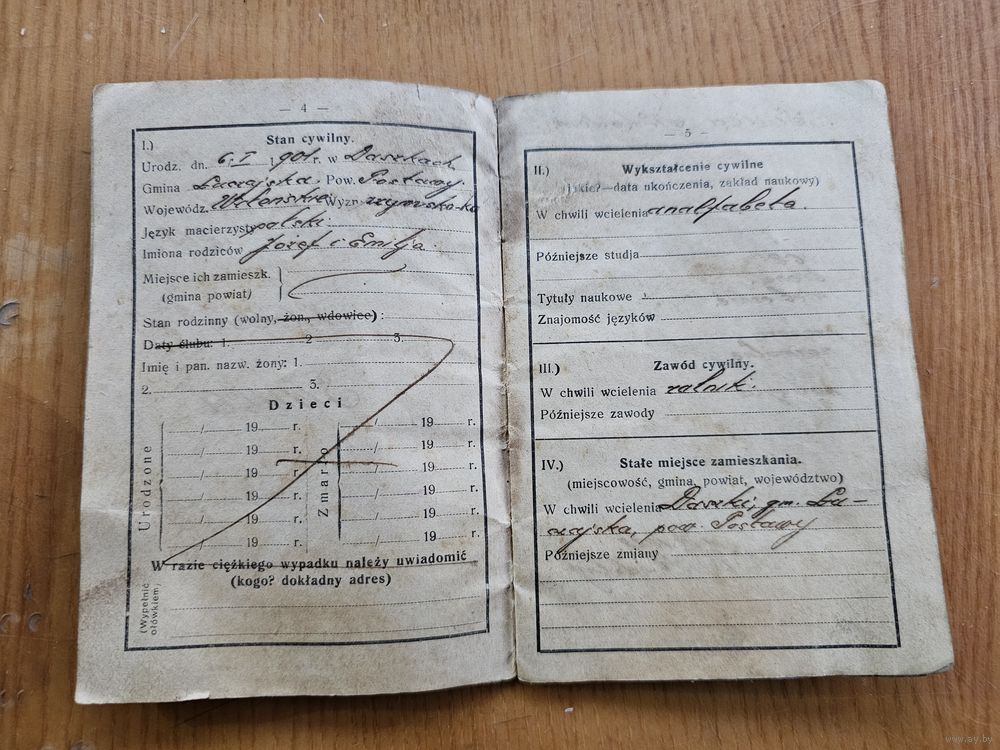 — 4 —
I.) Stan cywilny.
Urodz. dn. 6.I 1901 r. w Daszkach
Gmina Łuczajska. Pow. Postawy.
Wojewódz. Wileńskie Wyzn. rzymsko-kat
Język macierzysty polski.
Imiona rodziców Józef i Emilja.
Miejsce ich zamieszk.
(gmina powiat)
Stan rodzinny (wolny, żon., wdowiec) :
Daty ślubu: 1. 2 3.
Imię i pan. nazw. żony: 1.
2. 3.
Dzieci
Urodzone
Zmarło
/ 19 r. / 19 r.
/ 19 r. / 19 r.
/ 19 r. / 19 r.
/ 19 r. / 19 r.
/ 19 r. / 19 r.
/ 19 r. / 19 r.
W razie ciężkiego wypadku należy uwiadomić
(kogo? dokładny adres)
(Wypełnić
ołówkiem)
— 5 —
II.) Wykształcenie cywilne
(jakie?—data ukończenia, zakład naukowy)
W chwili wcielenia analfabeta.
Późniejsze studja
Tytuły naukowe
Znajomość języków
III.) Zawód cywilny.
W chwili wcielenia rolnik.
Późniejsze zawody
IV.) Stałe miejsce zamieszkania.
(miejscowość, gmina, powiat, województwo)
W chwili wcielenia Daszki, gm. Łu-
czajska, pow. Postawy
Późniejsze zmiany
www.ay.by